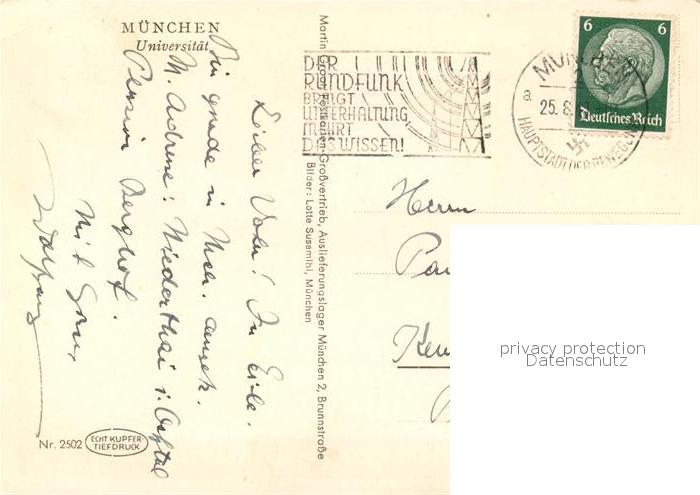 MÜNCHEN
Universität
Lieber Vater! In Eile.
Bin grade in Mch. angek.
N. Adresse: Niederthai i. Oetztal
Pension Berghof.
Mit Gruss
Wolfgang
Nr. 2502
ECHT KUPFER-
TIEFDRUCK
Martin Postkarten-Großvertrieb, Auslieferungslager München 2, Brunnstraße
Bilder: Lotte Susemihl, München
DER
RUNDFUNK
BRINGT
UNTERHALTUNG,
MEHRT
DAS WISSEN!
MÜNCHEN
a 25.8.
HAUPTSTADT DER BEWEGUNG
6 6
Deutsches Reich
Herrn
privacy protection
Datenschutz